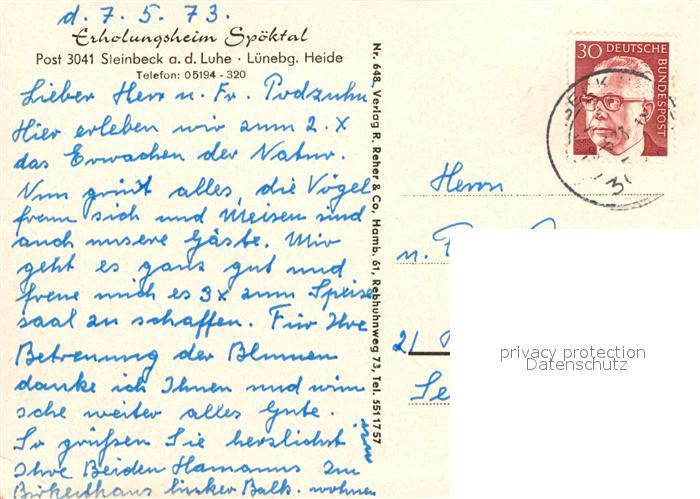 d. 7. 5. 73.
Erholungsheim Spöktal
Post 3041 Steinbeck a. d. Luhe · Lünebg. Heide
Telefon: 05194 - 320
Lieber Herr u. Fr. Podzuhn
Hier erleben wir zum 2. X
das Erwachen der Natur.
Nun grünt alles, die Vögel
freun sich und Meisen sind
auch unsere Gäste. Mir
geht es ganz gut und
freue mich es 3x zum Speise
saal zu schaffen. Für Ihre
Betreuung der Blumen
danke ich Ihnen und wün
sche weiter alles Gute.
So grüßen Sie herzlichst
Ihre Beiden Hamanns im
Birkenhaus linker Balk. wohnen
Nr. 648, Verlag R. Reher & Co, Hamb. 61, Rebhuhnweg 73, Tel. 5511757
30 DEUTSCHE
BUNDESPOST
Herrn
u.
21
privacy protection
Datenschutz